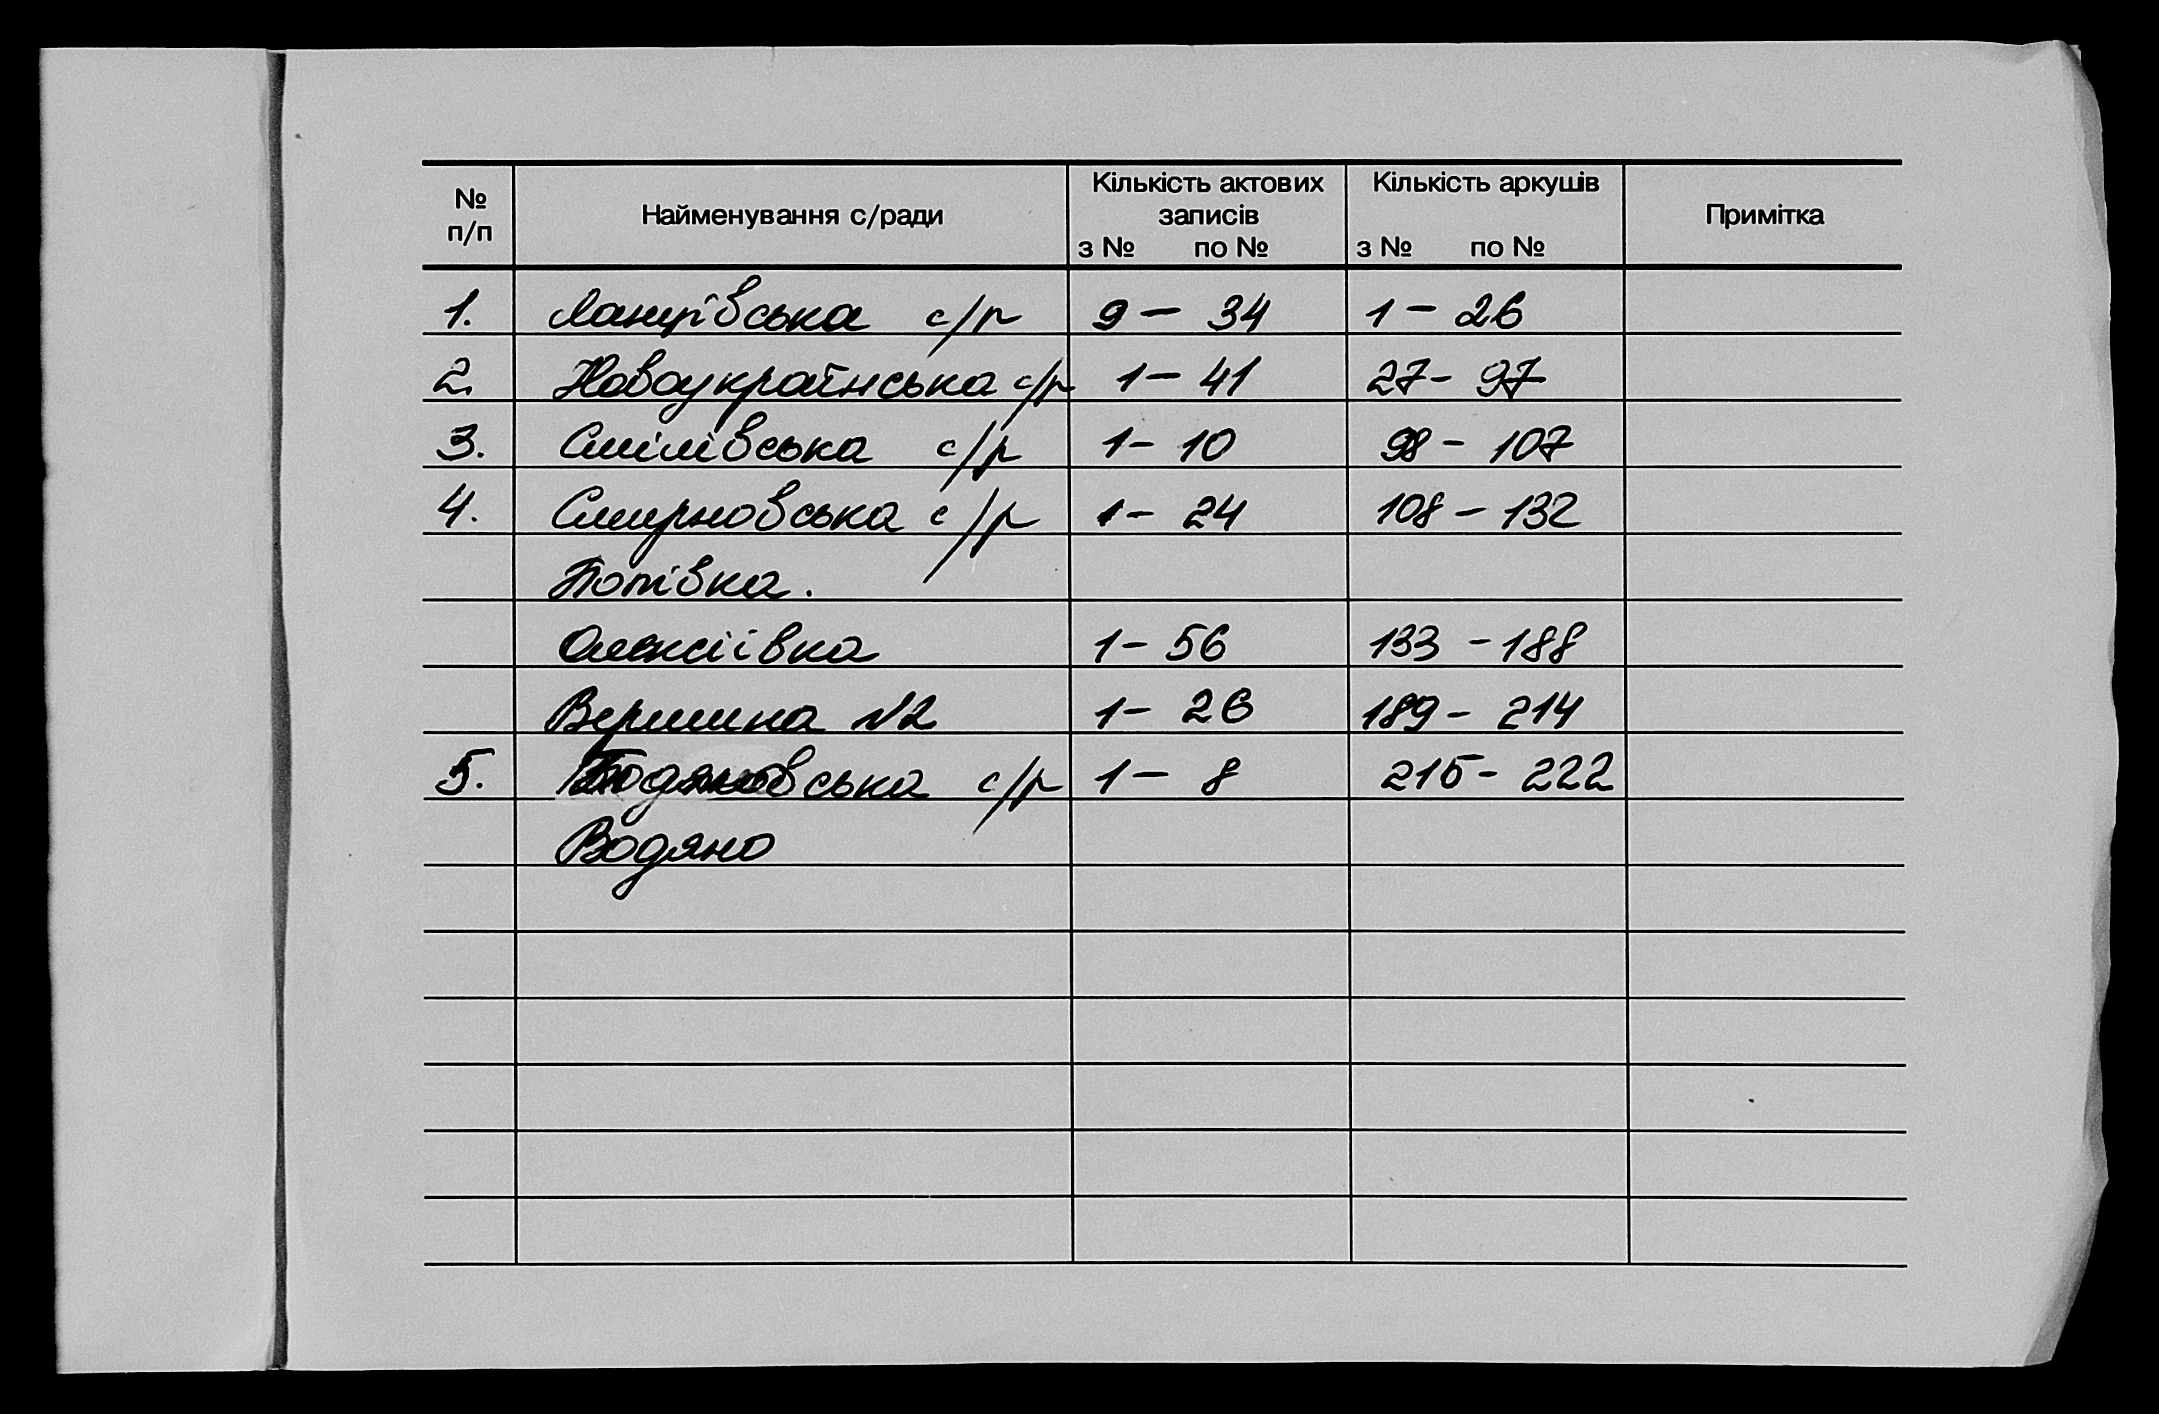 № п/п Найменування с/ради Кількість актових записів з № по № Кількість аркушів з № по № Примітка
1. с/р 9 – 34 1 – 26
2. Новоукраїнська с/р 1 – 41 27 – 97
3. Смілівська с/р 1 – 10 98 – 107
4. Смирновська с/р 1 – 24 108 – 132
Попівка.
Олексіівка 1 – 56 133 – 188
Вершина №2 1 – 26 189 – 214
5. с/р 1 – 8 215 – 222
Водяно